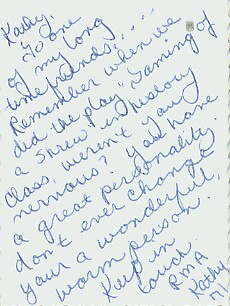 Kathy,
To one
of my long
time friends....
Remember when we
did the play "Taming of
a Shrew in history
class, weren't you
nervous? You have
a great personality.
don't ever change
your a wonderful,
warm person!
Keep in
touch
RMA
Kathy